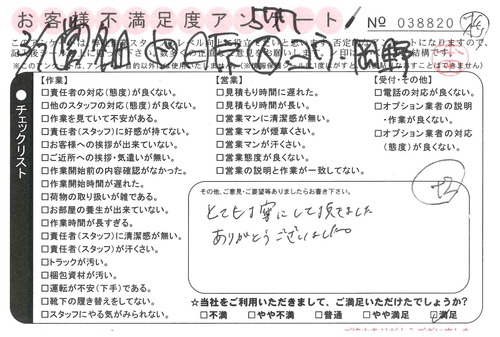 お客様不満足度アンケート
No 038820
チェックリスト
【作業】
□責任者の対応(態度)が良くない。
□他のスタッフの対応(態度)が良くない。
□作業を見ていて不安がある。
□責任者(スタッフ)に好感が持てない。
□お客様への挨拶が出来ていない。
□ご近所への挨拶・気遣いが無い。
□作業開始前の内容確認がなかった。
□作業開始時間が遅れた。
□荷物の取り扱いが雑である。
□お部屋の養生が出来ていない。
□作業時間が長すぎる。
□責任者(スタッフ)に清潔感が無い。
□責任者(スタッフ)が汗くさい。
□トラックが汚い。
□梱包資材が汚い。
□運転が不安(下手)である。
□靴下の履き替えをしてない。
□スタッフにやる気がみられない。
【営業】
□見積もり時間に遅れた。
□見積もり時間が長い。
□営業マンに清潔感が無い。
□営業マンが煙草くさい。
□営業マンが汗くさい。
□営業態度が良くない。
□営業の説明と作業が一致してない。
【受付・その他】
□電話の対応が良くない。
□オプション業者の説明
・作業が良くない。
□オプション業者の対応
(態度)が良くない。
その他、ご意見・ご要望等ありましたらお書き下さい。
とても丁寧にして頂きました
ありがとうございました
☆当社をご利用いただきまして、ご満足いただけたでしょうか?
□不満 □やや不満 □普通 □やや満足 □満足